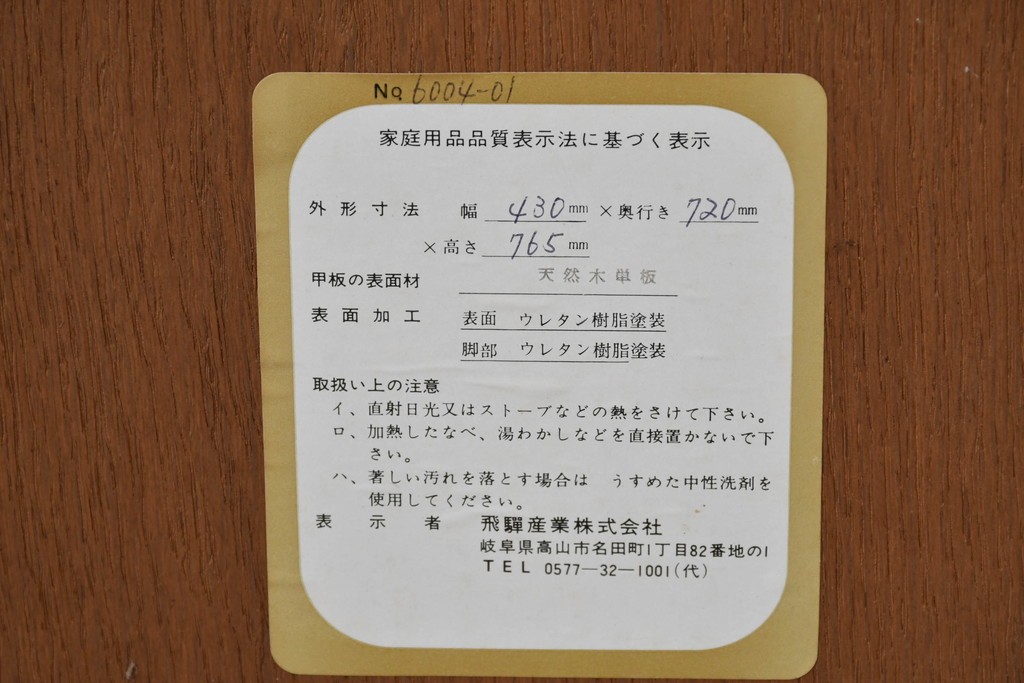 No. 6004-01
家庭用品品質表示法に基づく表示
外形寸法 幅 430mm ×奥行き 720mm
×高さ 765mm
甲板の表面材 天然木単板
表面加工 表面 ウレタン樹脂塗装
脚部 ウレタン樹脂塗装
取扱い上の注意
イ、直射日光又はストーブなどの熱をさけて下さい。
ロ、加熱したなべ、湯わかしなどを直接置かないで下
さい。
ハ、著しい汚れを落とす場合は うすめた中性洗剤を
使用してください。
表示者 飛驒産業株式会社
岐阜県高山市名田町1丁目82番地の1
TEL 0577―32―1001(代)